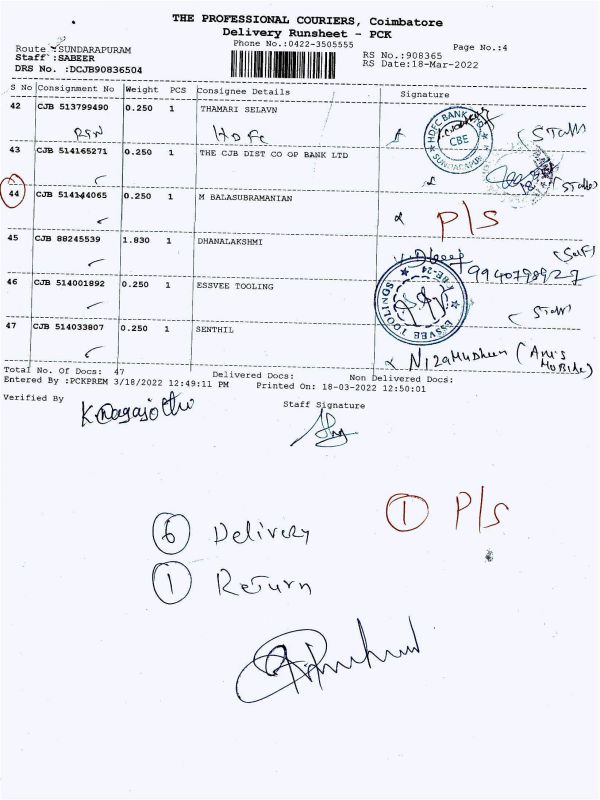 THE PROFESSIONAL COURIERS, Coimbatore
Delivery Runsheet - PCK
Phone No.:0422-3505555
Page No.:4
Route :SUNDARAPURAM
Staff :SABEER
DRS No. :DCJB90836504
RS No.:908365
RS Date:18-Mar-2022
S No Consignment No Weight PCS Consignee Details Signature
42 CJB 513799490 0.250 1 THAMARI SELAVN
HDFC
HDFC BANK LTD
CBE
SUNDARAPUR
(Staff)
43 CJB 514165271 0.250 1 THE CJB DIST CO OP BANK LTD
(Staff)
44 CJB 514144065 0.250 1 M BALASUBRAMANIAN
P/S
45 CJB 88245539 1.830 1 DHANALAKSHMI
(Self)
9940798927
46 CJB 514001892 0.250 1 ESSVEE TOOLING
ESSVEE TOOLING
(Staff)
47 CJB 514033807 0.250 1 SENTHIL
Total No. Of Docs: 47 Delivered Docs: Non Delivered Docs:
Entered By :PCKPREM 3/18/2022 12:49:11 PM Printed On: 18-03-2022 12:50:01
Verified By
K. Nagajothi
Staff Signature
6 Delivery
1 P/S
1 Return